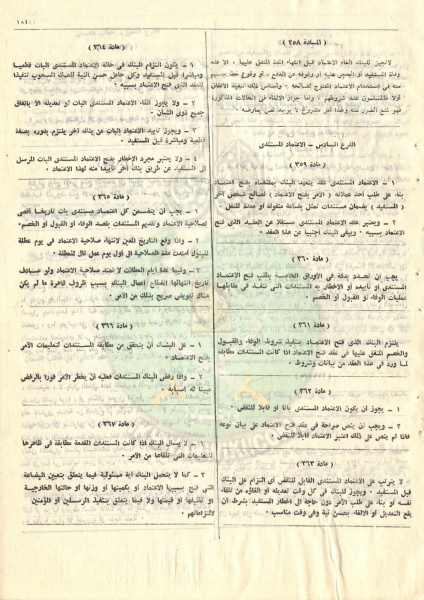 ١٨١
( المادة ٣٥٨ )
لا يجوز للبنك الغاء الاعتماد قبل انتهاء المدة المتفق عليها ، الا عند
وفاة المستفيد أو الحجر عليه أو وقوفه عن الدفع ، أو وقوع خطأ جسيم
منه في استخدام الاعتماد المفتوح لصالحه
الفرع السادس – الاعتماد المستندى
مادة ( ٣٥٩ )
١ – الاعتماد المستندى عقد يتعهد البنك بمقتضاه بفتح اعتماد
بناء على طلب احد عملائه ( الآمر بفتح الاعتماد ) لصالح شخص آخر
( المستفيد ) بضمان مستندات تمثل بضاعة منقولة او معدة للنقل
٢ – ويعتبر عقد الاعتماد المستندى مستقلا عن العقد الذى فتح
الاعتماد بسببه ويبقى البنك أجنبيا عن هذا العقد
مادة ( ٣٦٠ )
يجب ان تحدد بدقة في الأوراق الخاصة بطلب فتح الاعتماد
المستندى أو تأييده او الاخطار به المستندات التى تنفذ في مقابلها
عمليات الوفاء أو القبول او الخصم
مادة ( ٣٦١ )
يلتزم البنك الذى فتح الاعتماد بتنفيذ شروط الوفاء والقبول
والخصم المتفق عليها في عقد فتح الاعتماد اذا كانت المستندات مطابقة
لما ورد في هذا العقد من بيانات وشروط
مادة ( ٣٦٢ )
١ – يجوز أن يكون الاعتماد المستندى باتا او قابلا للنقض
٢ – ويجب ان ينص صراحة في عقد فتح الاعتماد على بيان نوعه
فاذا لم ينص على ذلك اعتبر الاعتماد قابلا للنقض
مادة ( ٣٦٣ )
لا يترتب على الاعتماد المستندى القابل للنقض أى التزام على البنك
قبل المستفيد ويجوز للبنك في كل وقت تعديله أو الغاؤه من تلقاء
نفسه أو بناء على طلب الآمر دون حاجة الى اخطار المستفيد بشرط ان
يقع التعديل أو الالغاء بحسن نية وفي وقت مناسب
مادة ( ٣٦٤ )
١ – يكون التزام البنك في حالة الاعتماد المستندى البات قطعيا
ومباشرا قبل المستفيد وكل حامل حسن النية للصك المسحوب تنفيذا
للعقد الذى فتح الاعتماد بسببه
٢ – ولا يجوز الغاء الاعتماد المستندى البات او تعديله الا باتفاق
جميع ذوى الشأن
٣ – ويجوز تأييد الاعتماد البات من بنك آخر يلتزم بدوره بصفة
قطعية ومباشرة قبل المستفيد
٤ – ولا يعتبر مجرد الاخطار بفتح الاعتماد المستندى البات المرسل
الى المستفيد عن طريق بنك آخر تأييدا منه لهذا الاعتماد
مادة ( ٣٦٥ )
١ – يجب أن يتضمن كل اعتماد مستندى بات تاريخا أقصى
لصلاحية الاعتماد وتقديم المستندات بقصد الوفاء او القبول او الخصم
٢ – واذا وقع التاريخ المعين لانتهاء صلاحية الاعتماد في يوم عطلة
للبنوك امتدت مدة الصلاحية الى أول يوم عمل تال للعطلة
٣ – وفيما عدا أيام العطلات لا تمتد صلاحية الاعتماد ولو صادف
تاريخ انتهائها انقطاع أعمال البنك بسبب ظروف قاهرة ما لم يكن
هناك تفويض صريح بذلك من الآمر
مادة ( ٣٦٦ )
١ – على البنك أن يتحقق من مطابقة المستندات لتعليمات الآمر
بفتح الاعتماد
٢ – واذا رفض البنك المستندات فعليه ان يخطر الآمر فورا بالرفض
مبينا له أسبابه
مادة ( ٣٦٧ )
١ – لا يسأل البنك اذا كانت المستندات المقدمة مطابقة في ظاهرها
للتعليمات التى تلقاها من الآمر
٢ – كما لا يتحمل البنك أية مسئولية فيما يتعلق بتعيين البضاعة
التى فتح بسببها الاعتماد او بكميتها او وزنها او حالتها الخارجية
او تغليفها او قيمتها ولا فيما يتعلق بتنفيذ المرسلين او المؤمنين
لالتزاماتهم